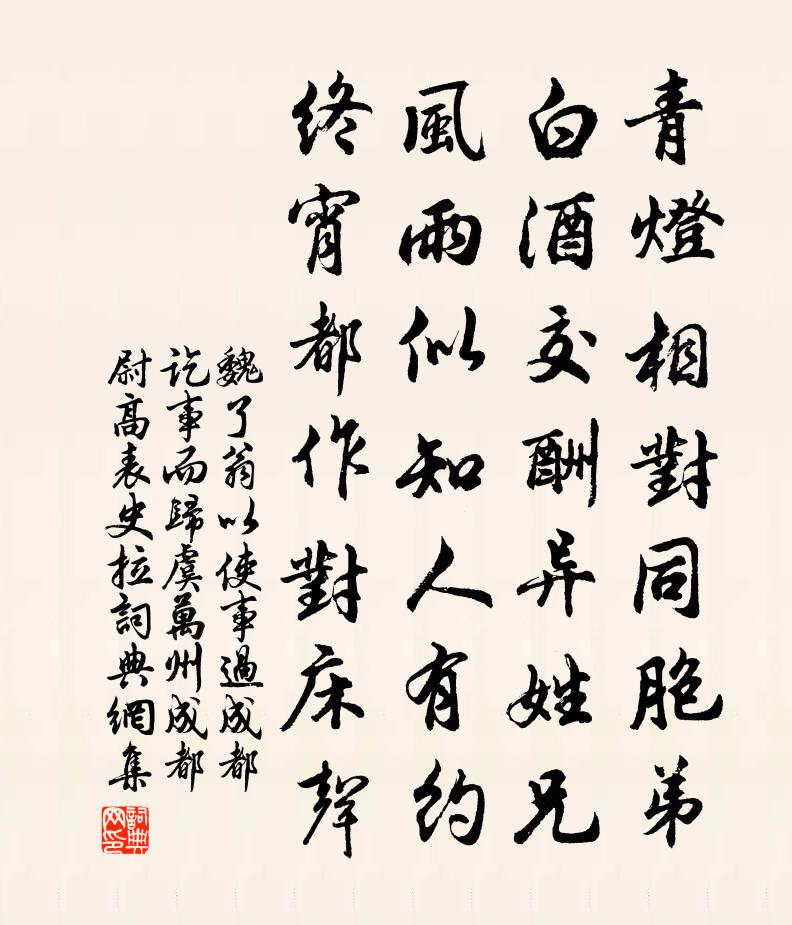 青燈相對同胞弟
白酒交酬异姓兄
風雨似知人有約
終宵都作對床聲
魏了翁以使事過成都
訖事而歸虞萬州成都
尉高表史拉詞典網集
詞典网印